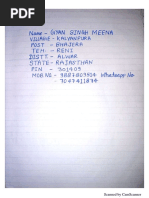 Name - GYAN SINGH MEENA
VILLAGE - KALYANPURA
POST - BHAJERA
TEH. - RENI
DISTT - ALWAR
STATE - RAJASTHAN
PIN - 301409
MOB NO - 9887803904 Whatsapp No
7047411874
Scanned by CamScanner